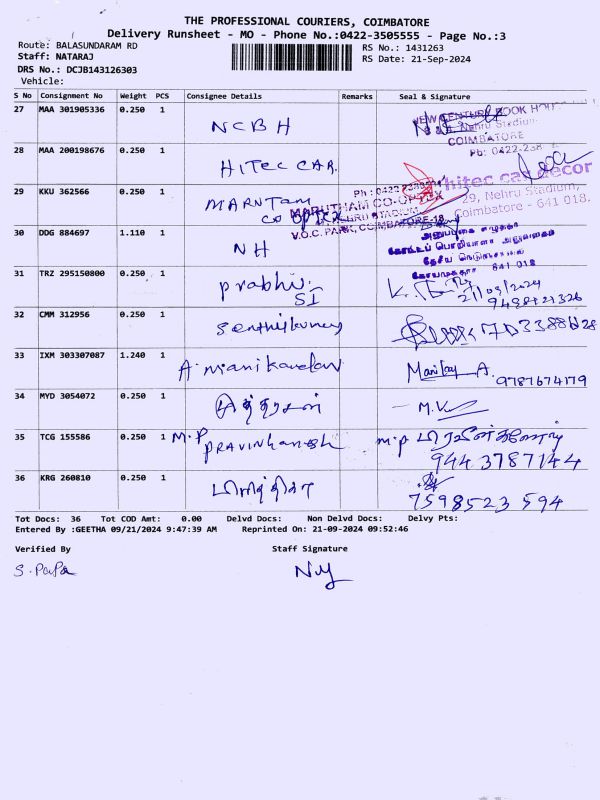 THE PROFESSIONAL COURIERS, COIMBATORE
Delivery Runsheet - MO - Phone No.:0422-3505555 - Page No.:3
Route: BALASUNDARAM RD
RS No.: 1431263
Staff: NATARAJ
RS Date: 21-Sep-2024
DRS No.: DCJB143126303
Vehicle:
S No Consignment No Weight PCS Consignee Details Remarks Seal & Signature
27 MAA 301905336 0.250 1 NCBH
NEW CENTURY BOOK HOUSE
Nehru Stadium
COIMBATORE
Ph: 0422-238
28 MAA 200198676 0.250 1 HITEC CAR
hitec car decor
29, Nehru Stadium,
Coimbatore - 641 018.
29 KKU 362566 0.250 1 MARUTAM CO OPTEX
Ph : 0422
MARUTHAM CO-OPTEX
NEHRU STADIUM
V.O.C. PARK, COIMBATORE-18
30 DDG 884697 1.110 1 NH
தேசிய நெடுஞ்சாலை
641 018
31 TRZ 295150800 0.250 1 prabhu. SI
21/09/2024
32 CMM 312956 0.250 1 Senthilkumar
33 IXM 303307087 1.240 1 A. manikandan
A. 9787674179
34 MYD 3054072 0.250 1
M.V
35 TCG 155586 0.250 1 M.P PRAVINKANESH
9443787144
36 KRG 260810 0.250 1
7598523 594
Tot Docs: 36 Tot COD Amt: 0.00 Delvd Docs: Non Delvd Docs: Delvy Pts:
Entered By :GEETHA 09/21/2024 9:47:39 AM Reprinted On: 21-09-2024 09:52:46
Verified By Staff Signature
S. Papa